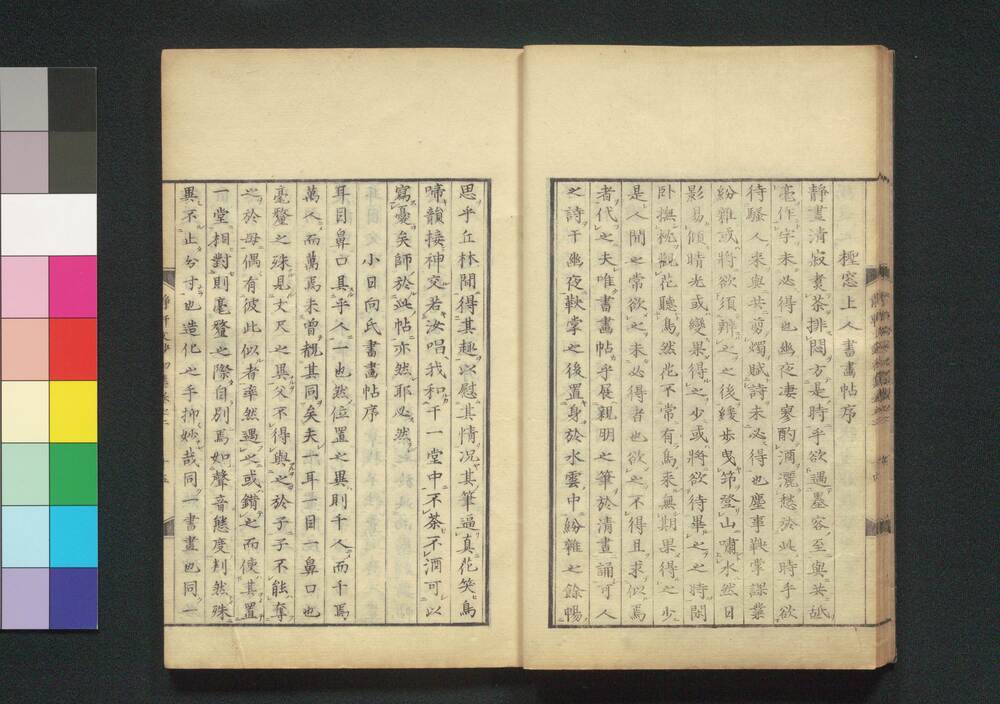 極窓上人書畫帖序
靜晝清寂煑茶排悶方是時乎欲遇墨客至與共砥
毫作字未必得也幽夜凄寥酌酒灑愁於此時乎欲
待騷人來與共剪燭賦詩未必得也塵事鞅掌課業
紛雜或將欲須辨之之後緩步曳筇登山嘯水然日
影易傾晴光或變果得之少或將欲待畢之之時閑
卧撫松觀花聽鳥然花不常有鳥來無期果得之少
是人間之常欲之未必得者也欲之不得且求似焉
者代之夫唯書畫帖乎展親朋之筆於清晝誦可人
之詩于幽夜鞅掌之後置身於水雲中紛雜之餘暢
思乎丘林閒得其趣以慰其情况其筆逼真花笑鳥
啼韻接神交若汝唱我和于一堂中不茶不酒可以
寫憂矣師於此帖亦然耶必然
小日向氏書畫帖序
耳目鼻口具乎人一也然位置之異則千人而千焉
萬人而萬焉未曾覩其同矣夫一耳一目一鼻口也
毫釐之殊見丈尺之異父不得與之於子子不能奪
之於母偶有彼此似者率然遇之或錯之而使其置
一堂相對則毫釐之際自別焉如聲音態度判然殊
異不止分寸也造化之手抑妙哉同一書畫也同一